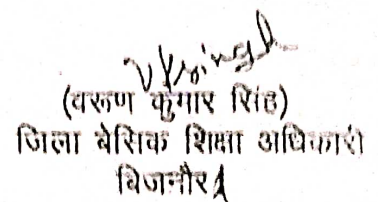 (वरूण कुमार सिंह)
जिला बेसिक शिक्षा अधिकारी
बिजनौर